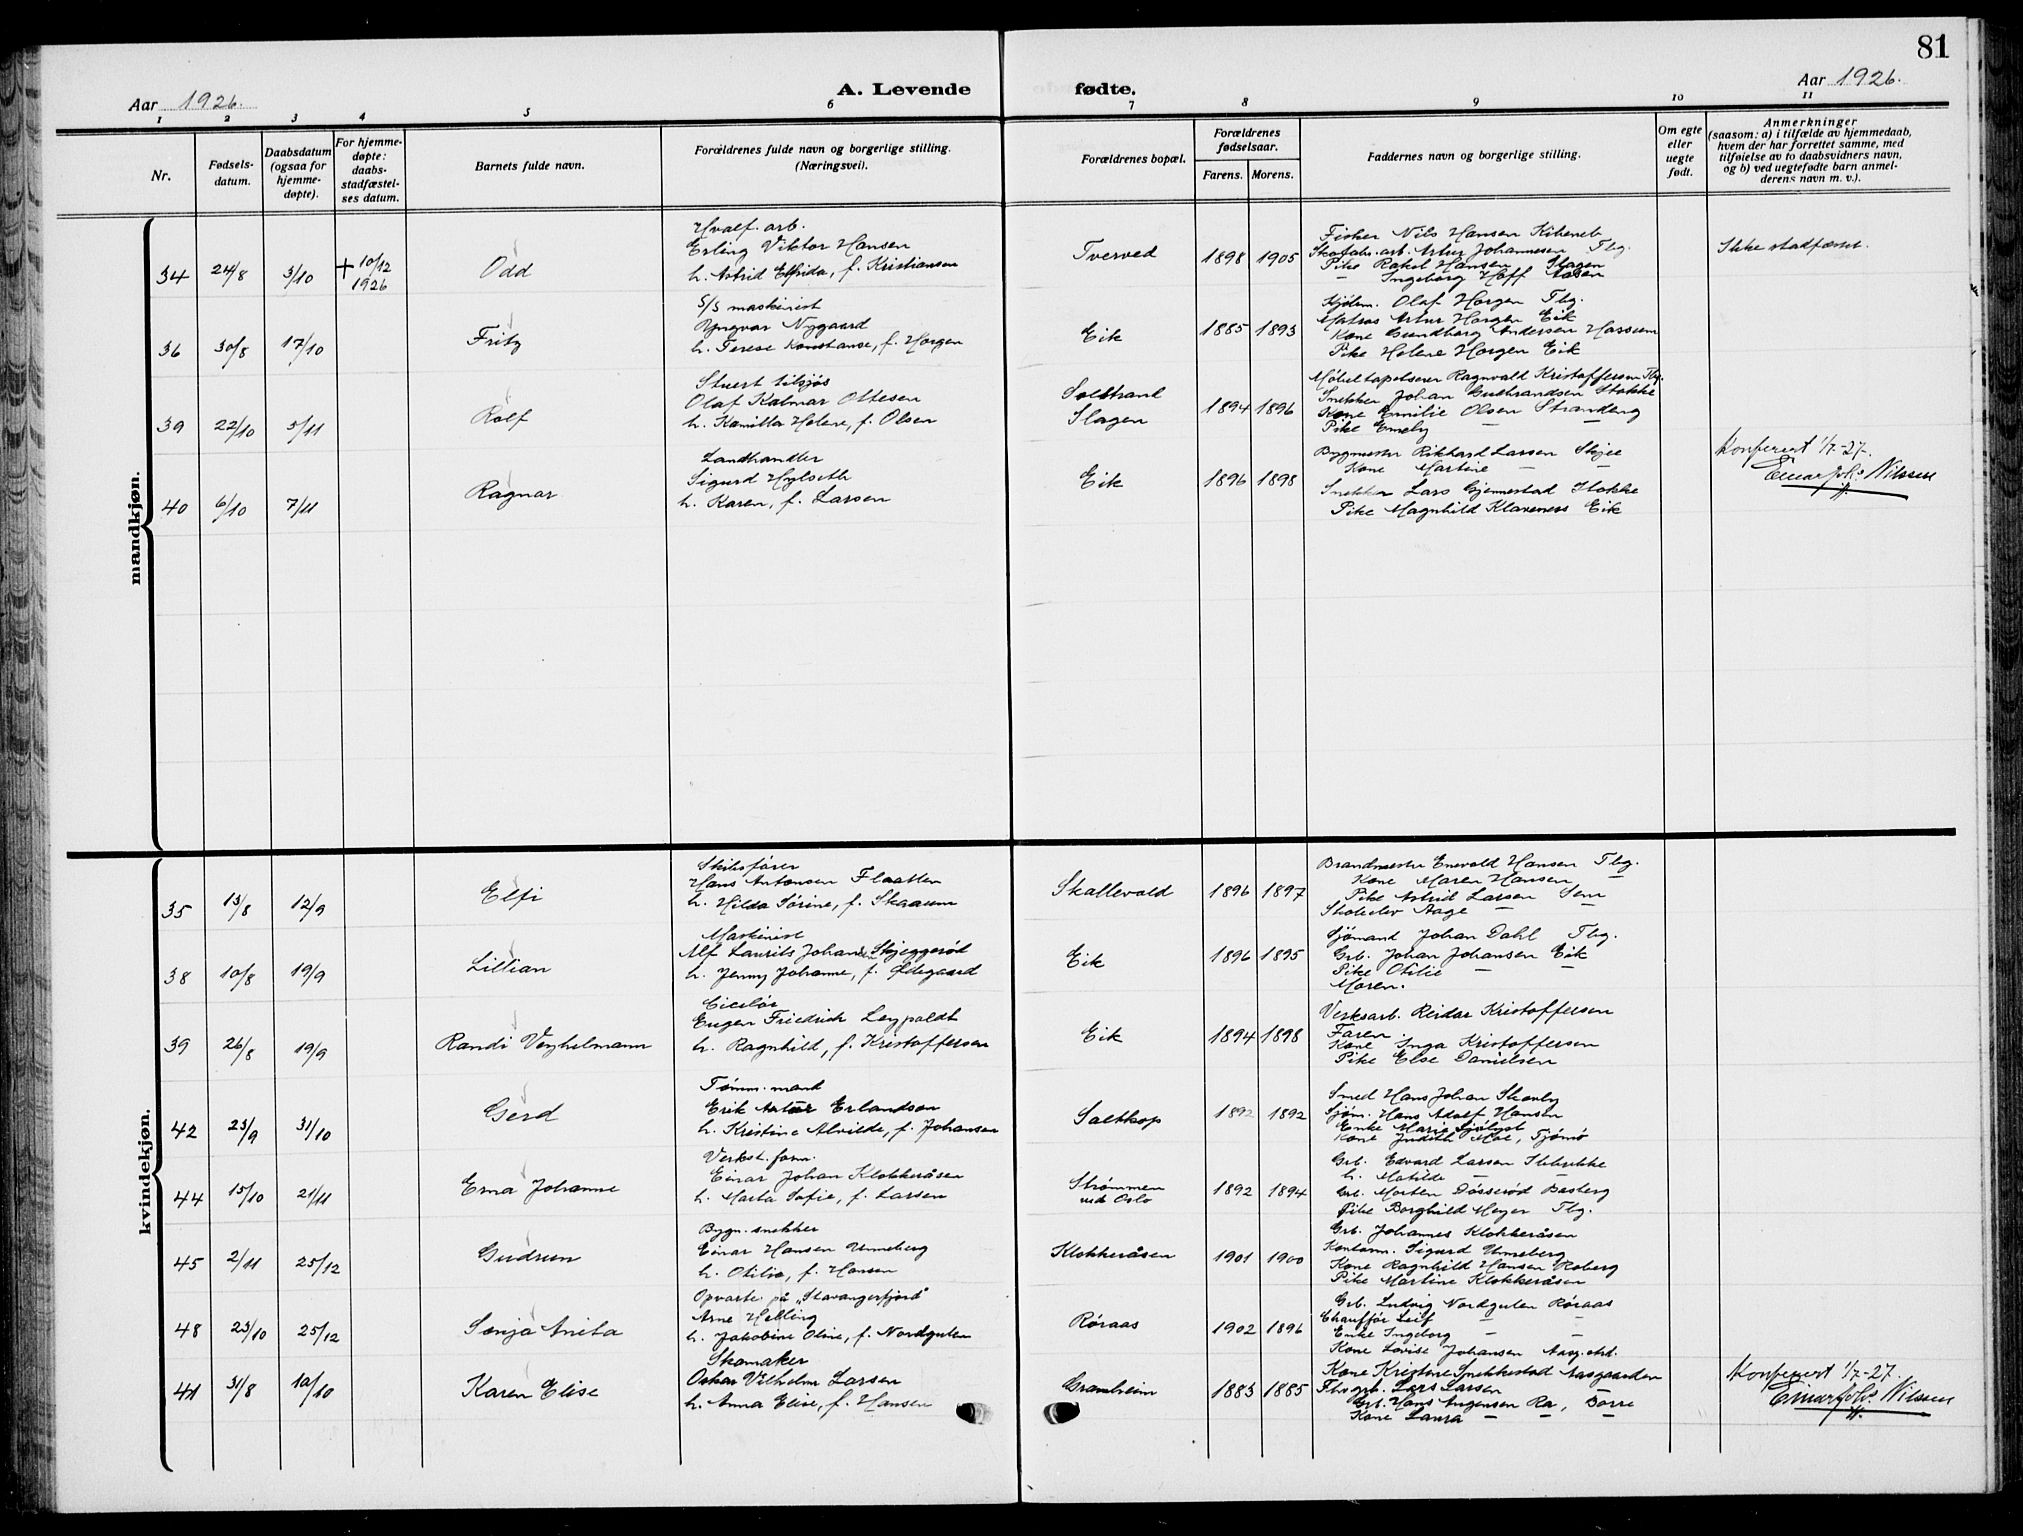 81
Aar 1926.
A. Levende fødte.
Aar 1926.
1 2 3 4 5 6 7 8 9 10 11
Nr.
Fødsels-
datum.
Daabsdatum
(ogsaa for
hjemme-
døpte).
For hjemme-
døpte:
daabs-
stadfæstel-
ses datum.
Barnets fulde navn.
Forældrenes fulde navn og borgerlige stilling.
(Næringsvei).
Forældrenes bopæl.
Forældrenes
fødselsaar.
Farens. Morens.
Faddernes navn og borgerlige stilling.
Om egte
eller
uegte
født.
Anmerkninger
(saasom: a) i tilfælde av hjemmedaab,
hvem der har forrettet samme, med
tilføielse av to daabsvidners navn,
og b) ved uegtefødte barn anmel-
derens navn m. v.).
mandkjøn.
34 24/8 3/10 + 10/12 1926 Odd
Hvalf. arb.
Erling Viktor Hansen
h. Astrid Elfrida, f. Kristiansen
Tverved 1898 1905
Fisker Nils Hansen
arb. Artur Johannesen Tbg.
Pike Rakel Hansen Slagen
— Ingeborg Hoff Aasen
Ikke stadfæstet.
36 30/8 17/10 Fritz
S/S maskinist
Yngvar Nygaard
h. Terese Konstanse, f. Horgen
Eik 1885 1893
Olaf Horgen Tbg.
Matros Artur Horgen Eik
Kone Gundborg Andersen Hassum
Pike Helene Horgen Eik
39 22/10 5/11 Rolf
Stuert tilsjøs
Olaf Kalmar Ottesen
h. Kamilla Helene, f. Olsen
Solstrand
Slagen
1894 1896
Møbeltapetserer Ragnvald Kristoffersen Tbg.
Snekker Johan Gudbrandsen Stokke
Kone Emilie Olsen Strandeng
Pike Emely — —
40 6/10 7/11 Ragnar
Landhandler
Sigurd Hylseth
h. Karen, f. Larsen
Eik 1896 1898
Bygmester Rikhard Larsen Skjee
Kone Martine — —
Snekker Lars Gjennestad Stokke
Pike Magnhild Klavenes Eik
Konferert 1/7-27.
Einar Joh. Nilssen
kvindekjøn.
35 13/8 12/9 Elfi
Skibsfører
Hans Antonsen Flaatten
h. Hilda Sørine, f. Skaaum
Skallevold 1896 1897
Brandmester Enevald Hansen Tbg.
Kone Maren Hansen —
Pike Astrid Larsen Sem
Skoleelev Aage — —
38 10/8 19/9 Lillian
Maskinist
Alf Laurits Johansen Skjeggerød
h. Jenny Johanne, f. Ødegaard
Eik 1896 1895
Sjømand Johan Dahl Tbg.
Grb. Johan Johansen Eik
Pike Otilie — —
Moren.
39 26/8 19/9 Randi Veyhelmann
Ciselør
Eugen Friedrich Leypoldt
h. Ragnhild, f. Kristoffersen
Eik 1894 1898
Verksarb. Reidar Kristoffersen
Faren.
Kone Inga Kristoffersen
Pike Else Danielsen
42 23/9 31/10 Gerd
Tømm. mand
Erik Artur Erlandson
h. Kristine Alvilde, f. Johansen
Saltkop 1892 1892
Smed Hans Johan Skauby
Sjøm. Hans Adolf Hansen
Enke Marie Sjølyst
Kone Judith Moe, Tjømø
44 15/10 21/11 Erna Johanne
Verkst. form.
Einar Johan Klokkeråsen
h. Marta Sofie, f. Larsen
Strømmen
ved Oslo
1892 1894
Grb. Edvard Larsen
h. Matilde —
Grb. Morten Døsserød Basberg
Pike Borghild Meyer Tbg.
45 2/11 25/12 Gudrun
Bygn. snekker
Einar Hansen Unneberg
h. Otilie, f. Hansen
Klokkeråsen 1901 1900
Grb. Johannes Klokkeråsen
Kontorm. Sigurd Unneberg
Kone Ragnhild Hansen Roberg
Pike Martine Klokkeråsen
48 23/10 25/12 Sonja Anita
Opvarte. på „Stavangerfjord"
Arne Helling
h. Jakobine Oline, f. Nordgulen
Røraas 1902 1896
Grb. Ludvig Nordgulen Røraas
Chauffør Leif — —
Enke Ingeborg — —
Kone Lovise Johansen
41 31/8 10/10 Karen Elise
Skomaker
Oskar Vilhelm Larsen
h. Anna Elise, f. Hansen
Granheim 1883 1885
Kone Kristine Snekkestad Aasgaarden
Lars Larsen
Grb. Hans Jørgensen Ra, Borre
Kone Laura — — —
Konferert 1/7-27.
Einar Joh. Nilssen